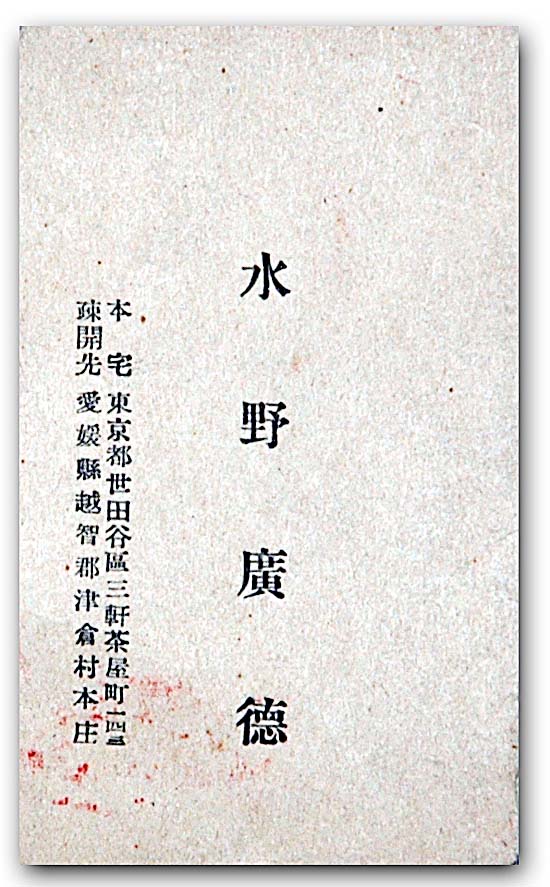 水野廣德
本宅 東京都世田谷區三軒茶屋町一四三
疎開先 愛媛縣越智郡津倉村本庄